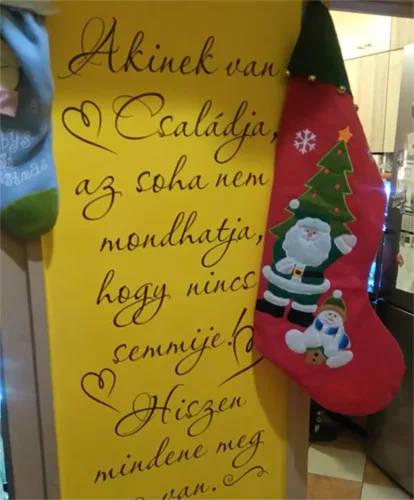 Akinek van
Családja,
az soha nem
mondhatja,
hogy nincs
semmije!
Hiszen
mindene meg
van.